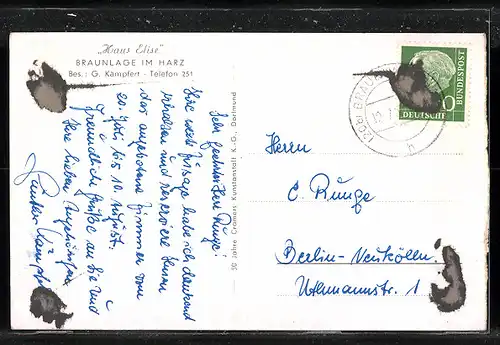 „Haus Elise"
BRAUNLAGE IM HARZ
Bes.: G. Kämpfert - Telefon 251
Sehr geehrter Herr Runge!
Ihre werte Zusage habe ich dankend
erhalten und reserviere Ihnen
das angebotene Zimmer vom
20. Juli bis 10. August.
Freundliche Grüße an Sie und
Ihre lieben Angehörigen
50 Jahre Cramers Kunstanstalt K.-G., Dortmund
(20b) BRAUN
DEUTSCHE
BUNDESPOST
Herrn
E. Runge
Berlin-Neukölln.
Uthmannstr. 1